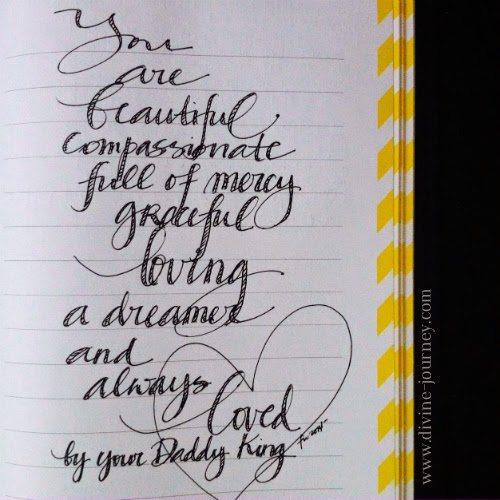 You
are
beautiful,
compassionate
full of mercy
graceful
loving
a dreamer
and
always
loved
by your Daddy King
www.divine-journey.com